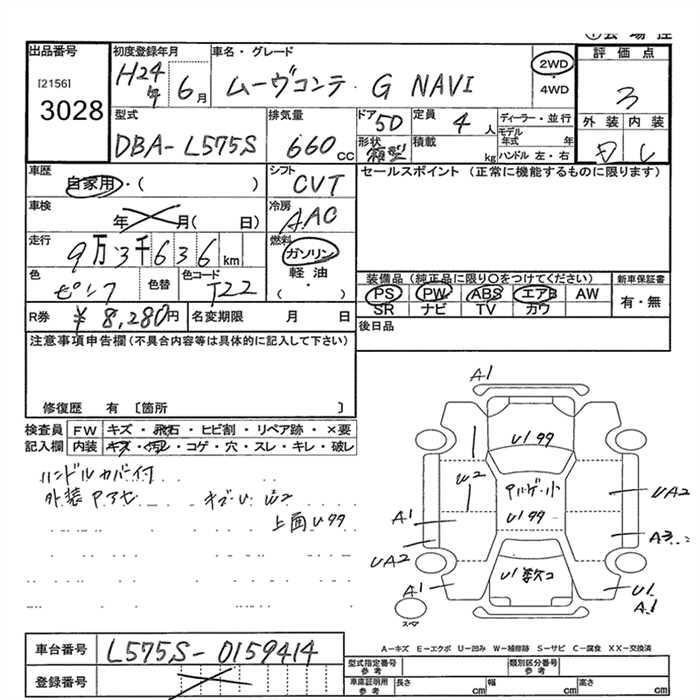 出品番号
[2156]
3028
初度登録年月
H24年 6月
車名・グレード
ムーヴコンテ・G NAVI
2WD
・
4WD
評価点
3
型式
DBA-L575S
排気量
660 CC
ドア 5D
形状 箱型
定員 4人
積載 kg
ディーラー・並行
モデル年式 年
ハンドル 左・右
外装 内装
車歴
自家用・( )
シフト
CVT
セールスポイント（正常に機能するものに限ります）
車検
年 月( 日)
冷房
AAC
走行
9万3千636km
燃料
ガソリン
軽油
( ・ )
色
ピンク
色替
色コード
T22
装備品（純正品に限り〇をつけてください）
新車保証書
PS PW ABS エアB AW
SR ナビ TV カワ
有・無
R券 ¥8,280円
名変期限 月 日
後日品
注意事項申告欄(不具合内容等は具体的に記入して下さい)
修復歴 有〔箇所 〕
検査員 FW キズ・飛石・ヒビ割・リペア跡・×要
記入欄 内装 キズ・汚レ・コゲ・穴・スレ・キレ・破レ
ハンドルカバー付
外装アセ キズ・U W2
上面U99
A1
U199
W2
U199
UA2
A1
A3
UA2
U1数コ
A1
U1
A1
スペア
A－キズ E－エクボ U－凹み W－補修跡 S－サビ C－腐食 XX－交換済
車台番号 L575S-0159414
登録番号
型式指定番号 参考
類別区分番号 参考
車庫証明用 参考 長さ cm 幅 cm 高さ cm